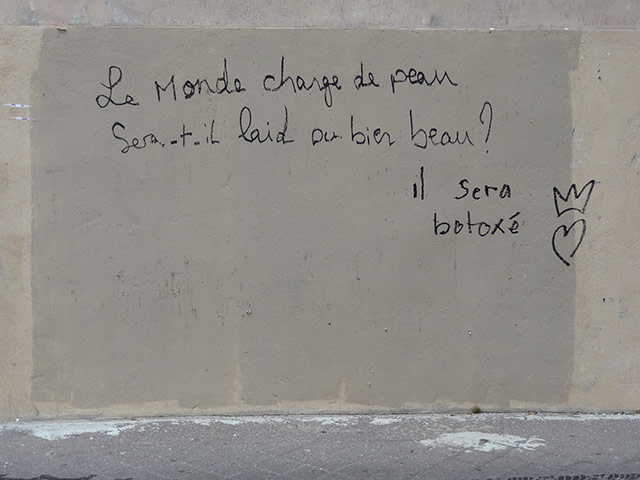 Le Monde change de peau
Sera-t-il laid ou bien beau?
il sera
botoxé